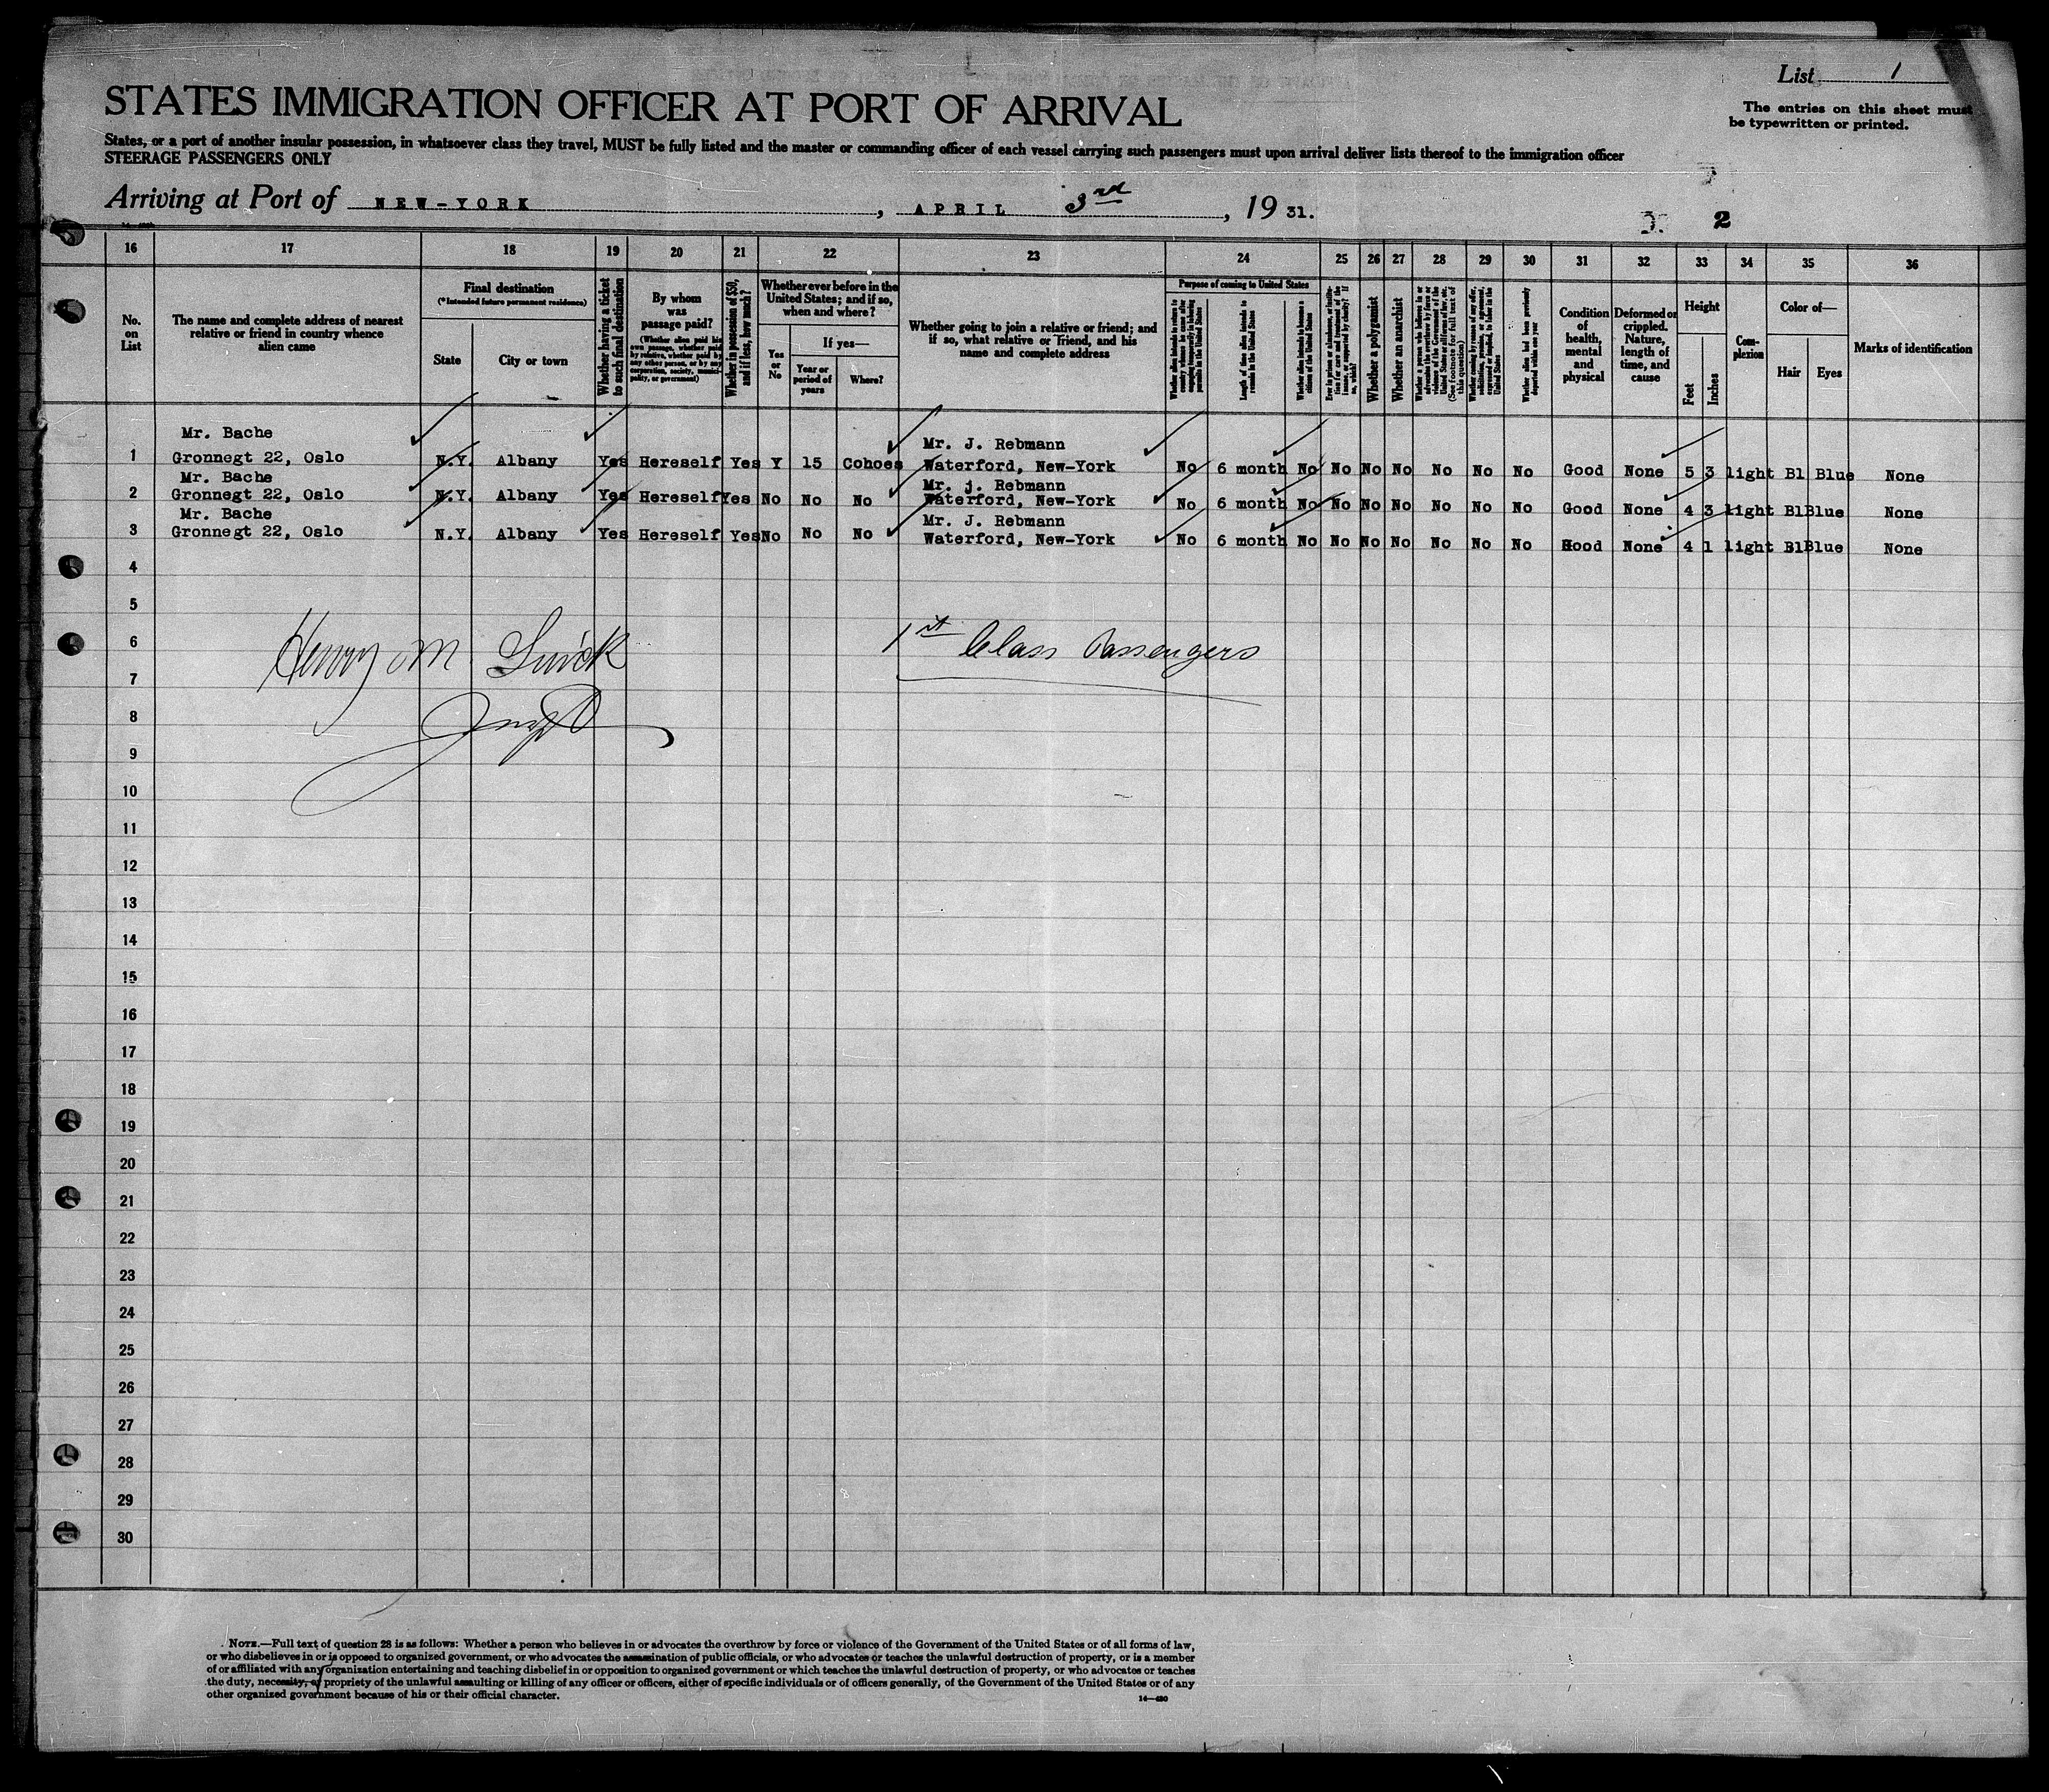 List 1
The entries on this sheet must
be typewritten or printed.
STATES IMMIGRATION OFFICER AT PORT OF ARRIVAL
States, or a port of another insular possession, in whatsoever class they travel, MUST be fully listed and the master or commanding officer of each vessel carrying such passengers must upon arrival deliver lists thereof to the immigration officer
STEERAGE PASSENGERS ONLY
Arriving at Port of NEW-YORK, APRIL 3rd, 19 31.
2
16 17 18 19 20 21 22 23 24 25 26 27 28 29 30 31 32 33 34 35 36
No. on List
The name and complete address of nearest relative or friend in country whence alien came
Final destination
(*Intended future permanent residence)
State
City or town
Whether having a ticket to such final destination
By whom was passage paid?
(Whether alien paid his own passage, whether paid by relative, whether paid by any other person, or by any corporation, society, municipality, or government)
Whether in possession of $50, and if less, how much?
Whether ever before in the United States; and if so, when and where?
Yes or No
If yes—
Year or period of years
Where?
Whether going to join a relative or friend; and if so, what relative or friend, and his name and complete address
Purpose of coming to United States
Whether alien intends to return to country whence he came after engaging temporarily in laboring pursuits in the United States
Length of time alien intends to remain in the United States
Whether alien intends to become a citizen of the United States
Whether a polygamist
Whether an anarchist
Whether alien had been previously deported within one year
Condition of health, mental and physical
Deformed or crippled. Nature, length of time, and cause
Height
Feet
Inches
Complexion
Color of—
Hair
Eyes
Marks of identification
Mr. Bache Mr. J. Rebmann
1 Gronnegt 22, Oslo N.Y. Albany Yes Hereself Yes Y 15 Cohoes Waterford, New-York No 6 month No No No No No No No Good None 5 3 light Bl Blue None
Mr. Bache Mr. j. Rebmann
2 Gronnegt 22, Oslo N.Y. Albany Yes Hereself Yes No No No Waterford, New-York No 6 month No No No No No No No Good None 4 3 light Bl Blue None
Mr. Bache Mr. J. Rebmann
3 Gronnegt 22, Oslo N.Y. Albany Yes Hereself Yes No No No Waterford, New-York No 6 month No No No No No No No Good None 4 1 light Bl Blue None
4
5
6 Henry M 1st Class Passengers
7
8
9
10
11
12
13
14
15
16
17
18
19
20
21
22
23
24
25
26
27
28
29
30
NOTE.—Full text of question 28 is as follows: Whether a person who believes in or advocates the overthrow by force or violence of the Government of the United States or of all forms of law,
or who disbelieves in or is opposed to organized government, or who advocates the assassination of public officials, or who advocates or teaches the unlawful destruction of property, or is a member
of or affiliated with any organization entertaining and teaching disbelief in or opposition to organized government or which teaches the unlawful destruction of property, or who advocates or teaches
the duty, necessity, or propriety of the unlawful assaulting or killing of any officer or officers, either of specific individuals or of officers generally, of the Government of the United States or of any
other organized government because of his or their official character.
14—480